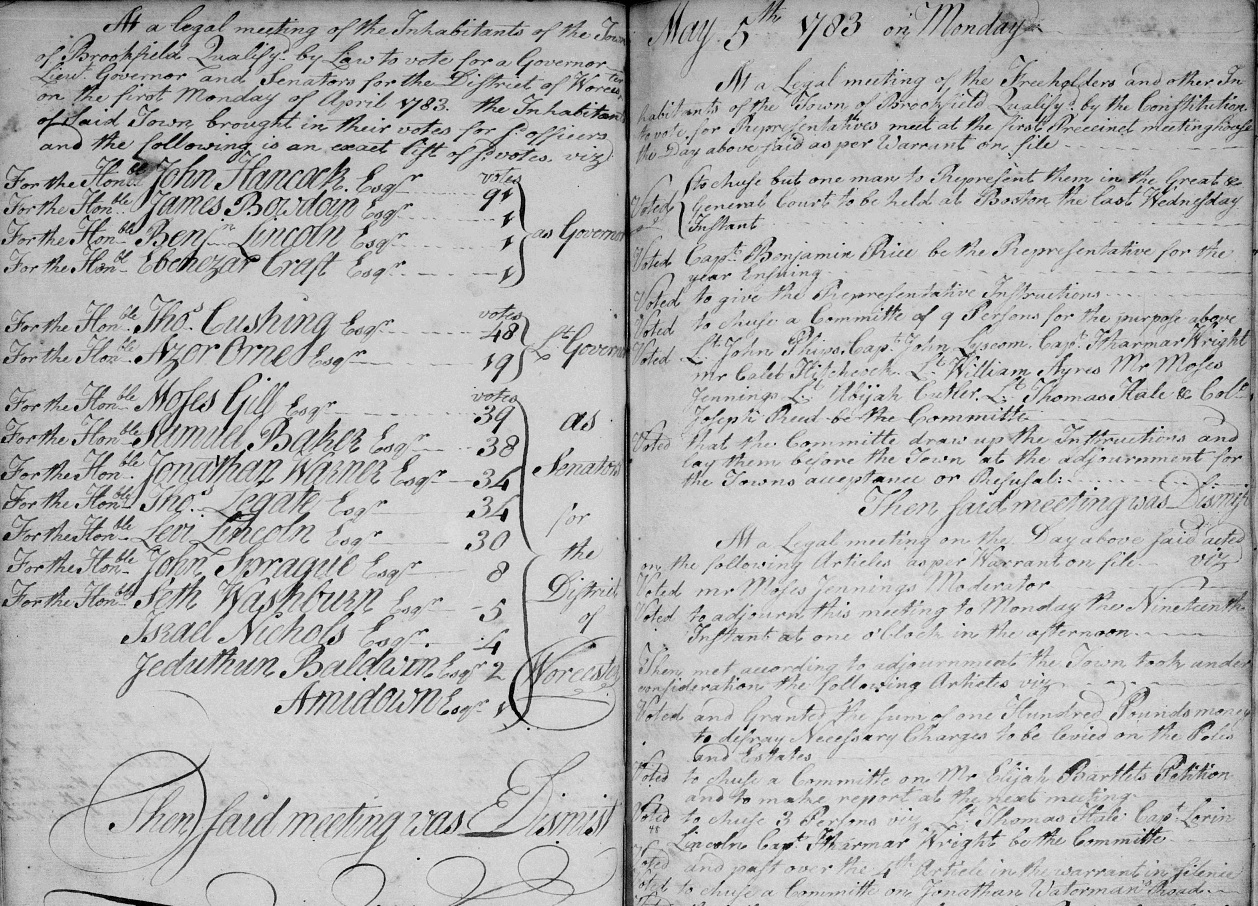 At a legal meeting of the Inhabitants of the Town
of Brookfield Qualify.d by Law to vote for a Governor
Lieut. Governor and Senators for the District of Worcester
on the first Monday of April 1783. the Inhabitants
of said Town brought in their votes for s.d officers
and the following is an exact list of s.d votes, viz
votes
For the Honble John Hancock Esqr 91
For the Honble James Bowdoin Esqr 1
For the Honble Benjn Lincoln Esqr 1 as Governor
For the Honble Ebenezar Craft Esqr 1
votes
For the Honble Thos Cushing Esqr 48
For the Honble Azor Orne Esqr 19 Lt Governor
votes
For the Honble Moses Gill Esqr 39 as
For the Honble Samuel Baker Esqr 38
For the Honble Jonathan Warner Esqr 34 Senators
For the Honble Thos Legate Esqr 34 for
For the Honble Levi Lincoln Esqr 30 the
For the Honble John Sprague Esqr 8
For the Honble Seth Washburn Esqr 5 District
Israel Nichols Esqr 4 of
Jeduthun Baldwin Esqr 2 Worcester
Amidown Esqr 1
Then said meeting was Dismist
May 5th 1783 on Monday
At a Legal meeting of the Freeholders and other In
habitants of the Town of Brookfield Qualify.d by the Constitution
to vote for Representatives meet at the first Precinct meeting house
the Day above said as per Warrant on file
Voted to chuse but one man to Represent them in the Great &
General Court to be held at Boston the last Wednesday
Instant
Voted Capt. Benjamin Rice be the Representative for the
year Ensuing
Voted to give the Representative Instructions
Voted to chuse a Committe of 9 Persons for the purpose above
Voted Lt John Phips, Capt. John Lyscom, Capt. Tharmar Wright
mr Caleb Hitchcock Lt William Ayres Mr Moses
Jennings Lt Abijah Cutler Lt Thomas Hale & Coln
Joseph Reed be the Committe
Voted that the Committe draw up the Intructions and
lay them before the Town at the adjournment for
the Towns acceptance or Refusal
Then said meeting was Dismist
At a Legal meeting on the Day above said acted
on the following Articles as per Warrant on file viz
Voted mr Moses Jennings Moderator
Voted to adjourn this meeting to Monday the Nineteenth
Instant at one o'Clock in the afternoon
Then met according to adjournment the Town took under
consideration the following Articles viz
Voted and Granted the sum of one Hundred Pounds money
to defray Necessary Charges to be levied on the Polls
and Estates
Voted to chuse a Committe on Mr Elijah Bartlets Petition
and to make report at the next meeting
Voted to chuse 3 Persons viz Lt Thomas Hale Capt. Lorin
Lincoln Capt. Tharmar Wright be the Committe
Voted and past over the 4th Article in the warrant in silence
Voted to chuse a Committe on Jonathan Watermans Road